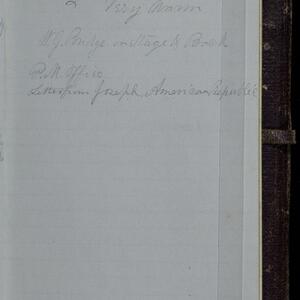 Very Warm
N.G. Bridge on Stage & Back
P.M. Office
Letter from Joseph, American Republic